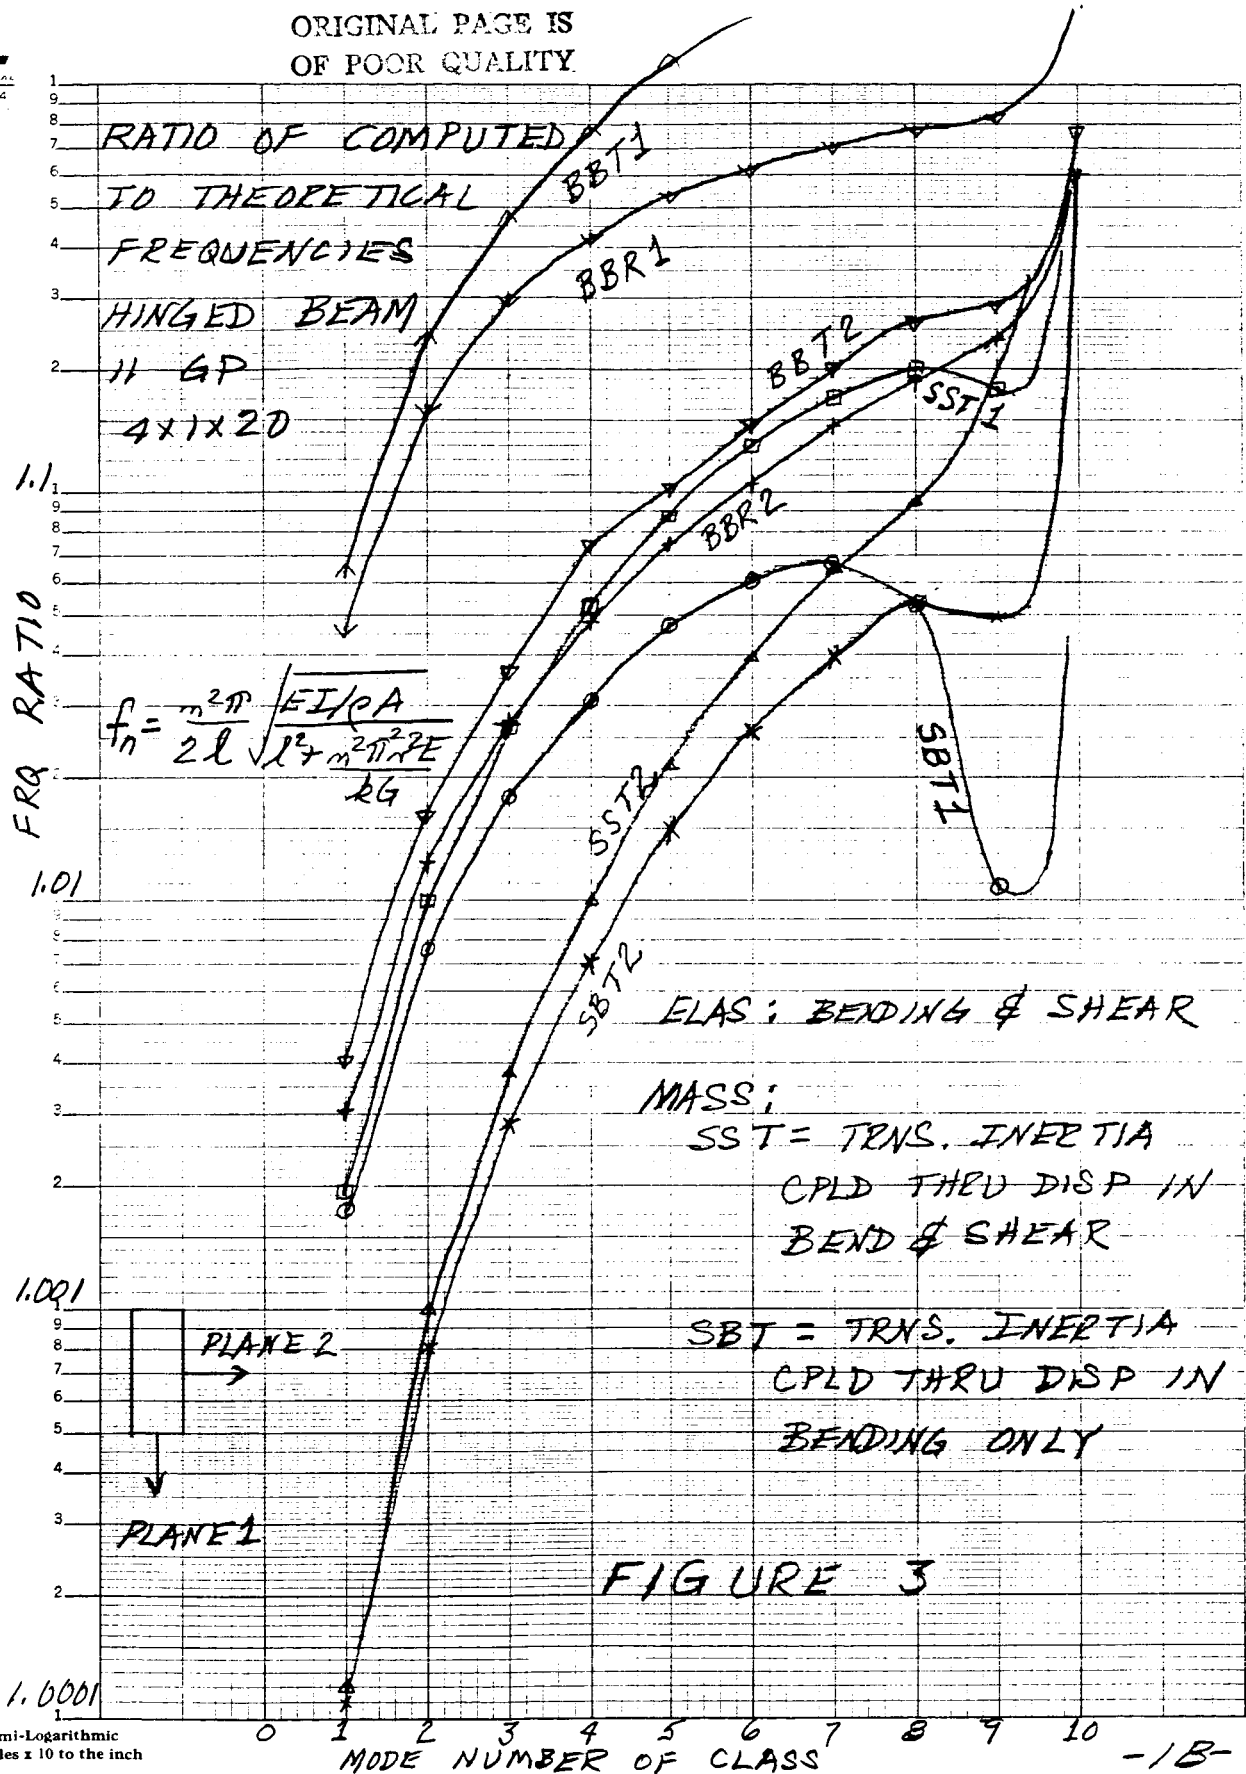 ORIGINAL PAGE IS
OF POOR QUALITY
RATIO OF COMPUTED
TO THEORETICAL
FREQUENCIES
HINGED BEAM
11 GP
4x1x20
BBT1
BBR1
BBT2
SST1
BBR2
SBT1
SST2
SBT2
1
9
8
7
6
5
4
3
2
1.1 1
9
8
7
6
5
4
2
1.01
4
3
2
1.001
1
9
8
7
6
5
4
3
2
1.0001
1
FRQ RATIO
fn = n²π / 2l √ EI/ρA / l² + n²π²r²E / kG
ELAS: BENDING & SHEAR
MASS:
SST = TRNS. INERTIA
CPLD THRU DISP IN
BEND & SHEAR
SBT = TRNS. INERTIA
CPLD THRU DISP IN
BENDING ONLY
PLANE 2
PLANE 1
FIGURE 3
0 1 2 3 4 5 6 7 8 9 10
MODE NUMBER OF CLASS
-1B-
mi-Logarithmic
les x 10 to the inch